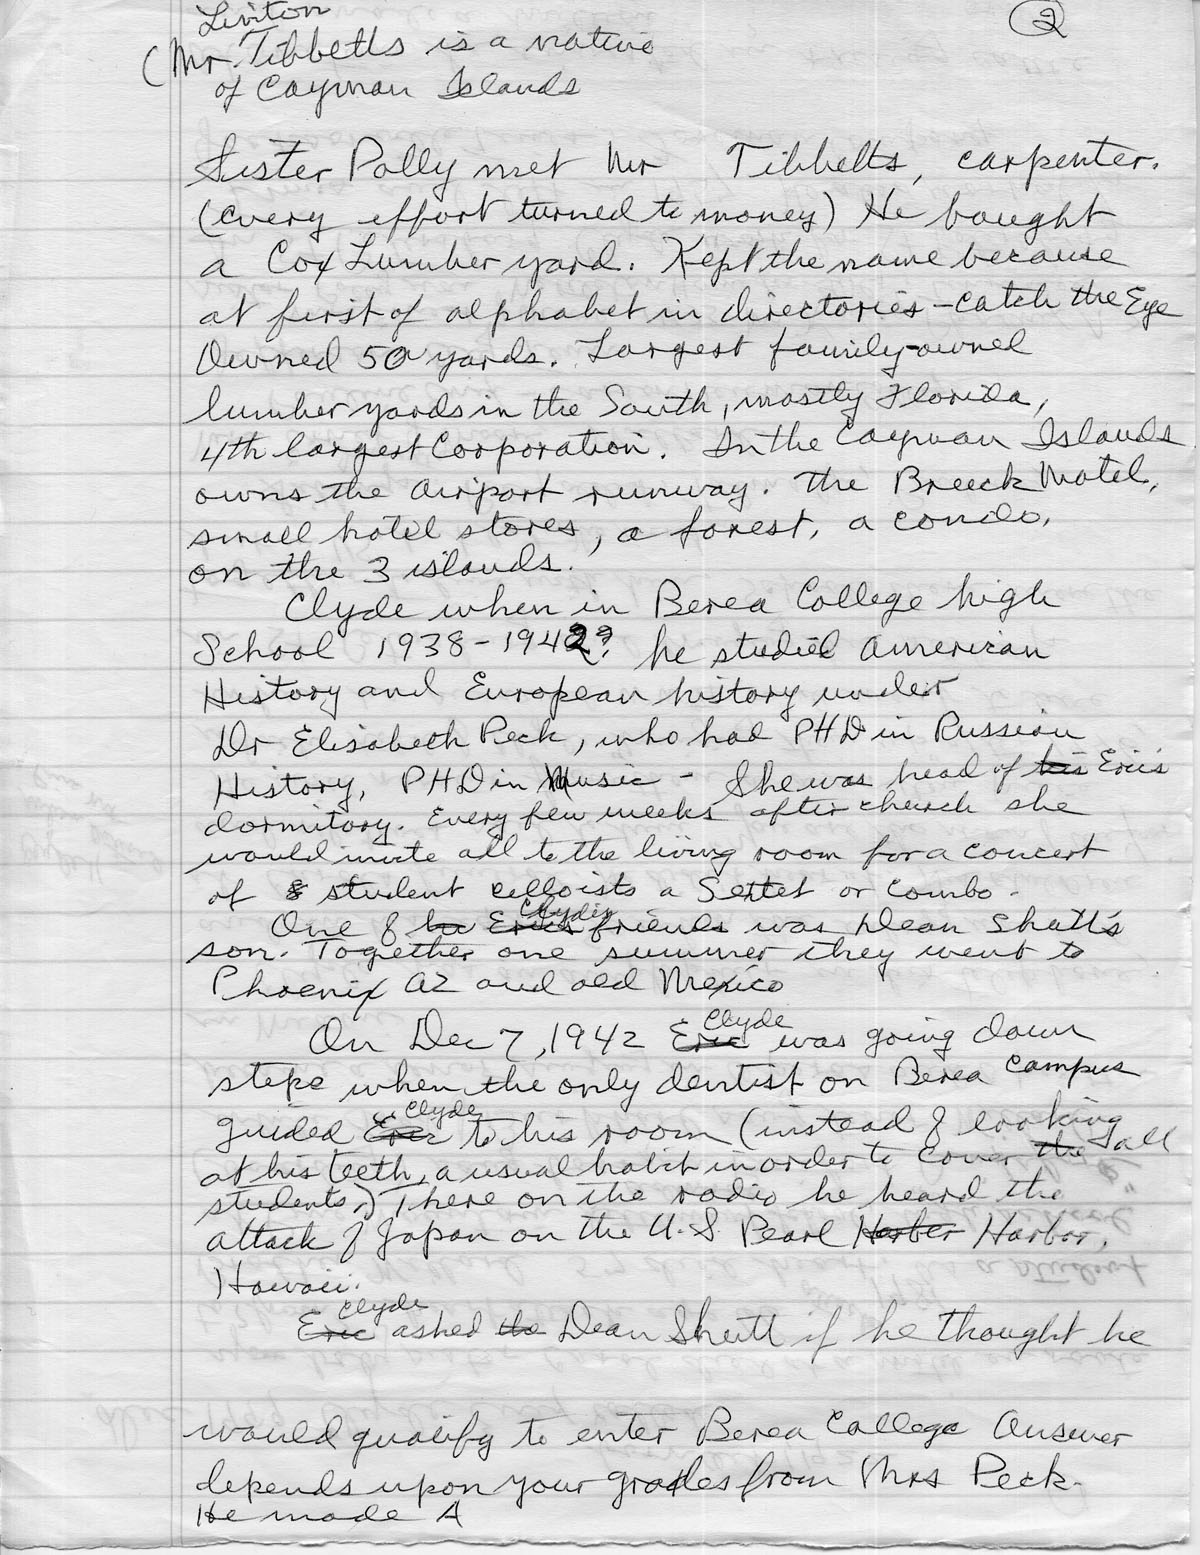 Linton
2
(Mr. Tibbetts is a native
of Cayman Islands
Sister Polly met Mr Tibbetts, carpenter.
(every effort turned to money) He bought
a Cox Lumber yard. Kept the name because
at first of alphabet in directories - catch the Eye
Owned 50 yards. Largest family-owned
lumber yards in the South, mostly Florida,
4th largest Corporation. In the Cayman Islands
owns the airport runway. the Breeck Motel,
small hotel stores, a forest, a condo,
on the 3 islands.
Clyde when in Berea College high
School 1938-1942? he studied American
History and European history under
Dr Elisabeth Peck, who had PHD in Russian
History, PHD in Music - She was head of his Eric's
dormitory. Every few weeks after church she
would invite all to the living room for a concert
of 8 student celloists a Septet or combo.
Clyde's
One of his Eric's friends was Dean Shutt's
son. Together one summer they went to
Phoenix AZ and old Mexico
Clyde
On Dec 7, 1942 Eric was going down
steps when the only dentist on Berea Campus
Clyde
guided Eric to his room (instead of looking
at his teeth, a usual habit in order to cover the all
students.) There on the radio he heard the
attack of Japan on the U.S. Pearl Herber Harbor,
Hawaii.
Clyde
Eric asked the Dean Shutt if he thought he
would qualify to enter Berea College Answer
depends upon your grades from Mrs Peck.
He made A